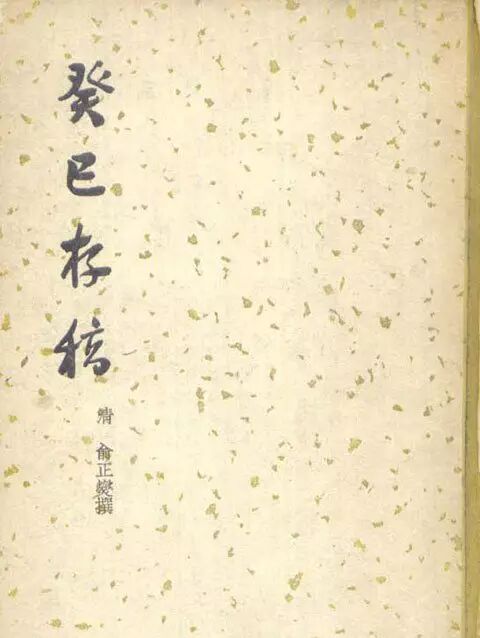 癸巳存稿
清 俞正燮撰